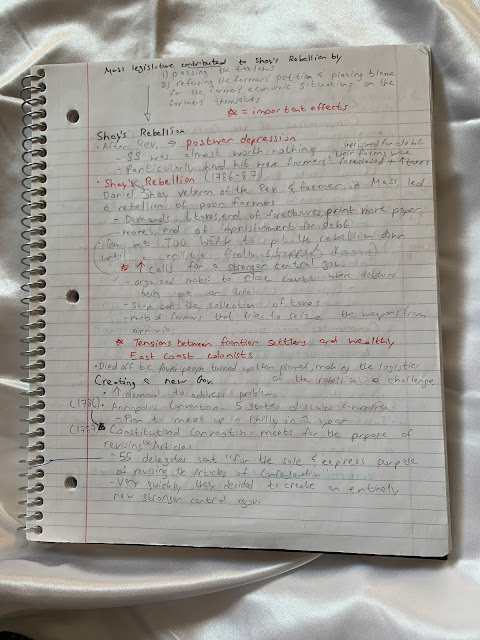 Mass legislature contributed to Shay's Rebellion by
1) passing the tax laws
2) refusing the farmers' petition & placing blame
for the farmers economic situations on the
farmers themselves
= important effects
Shay's Rebellion
• After Rev. → postwar depression
- $$ was almost worth nothing
- Particularly hard hit were farmers: imprisoned for debt
their farms were
foreclosed + ↑ taxes
• Shay's Rebellion (1786-87)
Daniel Shay veteran of the Rev. & farmer in Mass. led
a rebellion of poor farmers
- Demands: ↓ taxes, end of foreclosures, print more paper
money, end of imprisonment for debt
- Gov. was TOO WEAK to put the rebellion down
until militia finally stopped
↑ calls for a stronger central gov.
- organized mobs to close courts where debtors
being put on trial
- Stop the collection of taxes
- mob of farmers that tries to seize the weapons from
armories
Tensions between frontier settlers and wealthy
East Coast colonists
• Died off bc fewer people turned up than planned, making the logistics
of the rebellion a challenge
Creating a new Gov.
• ↑ demand to address problems
(1786) • Annapolis Convention: 5 states discuss commerce
- Plan to meet up in Philly in 1 year
(1787) Constitutional Convention meets for the prpose of
revising the Articles
- 55 delegates sent "for the sole & express purpose
of revising the Articles of Confederation"
- Very quickly they decided to create an entirely
new stronger central gov.